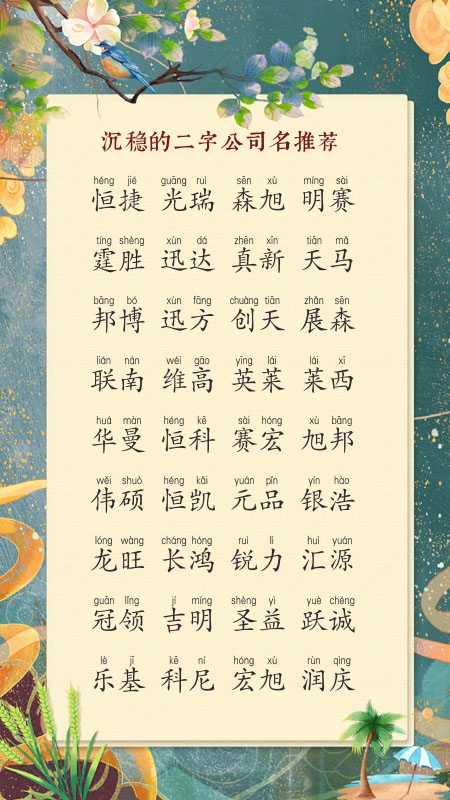 沉稳的二字公司名推荐
héng jié guāng ruì sēn xù míng sài
恒捷 光瑞 森旭 明赛
tíng shèng xùn dá zhēn xīn tiān mǎ
霆胜 迅达 真新 天马
bāng bó xùn fāng chuàng tiān zhǎn sēn
邦博 迅方 创天 展森
lián nán wéi gāo yīng lái lái xī
联南 维高 英莱 莱西
huá màn héng kē sài hóng xù bāng
华曼 恒科 赛宏 旭邦
wěi shuò héng kǎi yuán pǐn yín hào
伟硕 恒凯 元品 银浩
lóng wàng cháng hóng ruì lì huì yuán
龙旺 长鸿 锐力 汇源
guān lǐng jí míng shèng yì yuè chéng
冠领 吉明 圣益 跃诚
lè jī kē ní hóng xù rùn qìng
乐基 科尼 宏旭 润庆